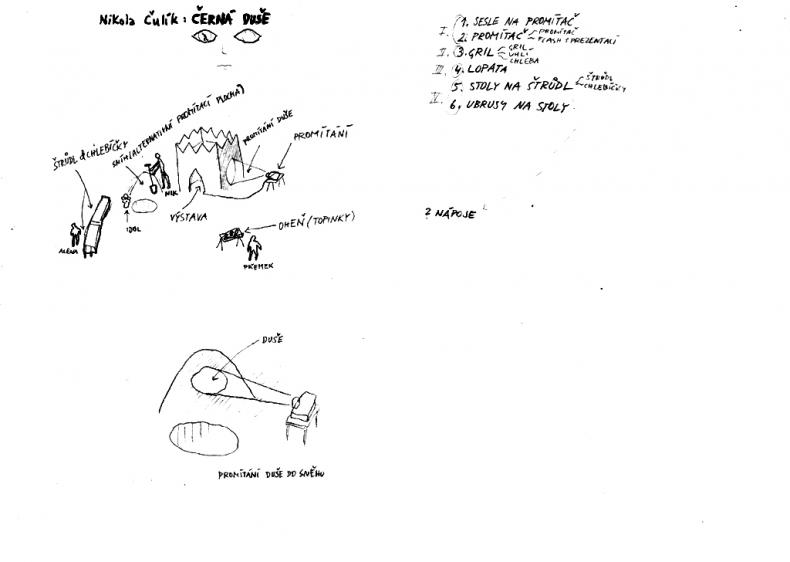 Nikola Čulík: ČERNÁ DUŠE
I. 1. SESLE NA PROMÍTAČ
2. PROMÍTAČ PROMÍTAČ
FLASH S PREZENTACÍ
II. 3. GRIL GRIL
UHLÍ
CHLEBA
III. 4. LOPATA
5. STOLY NA ŠTRŮDL ŠTRŮDL
CHLEBÍČKY
V. 6. UBRUSY NA STOLY
? NÁPOJE
ŠTRŮDL & CHLEBÍČKY
SNÍH (ALTERNATIVNÁ PROMÍTACÍ PLOCHA)
PROMÍTÁNÍ DUŠE
PROMÍTÁNÍ
NIK
IDOL
VÝSTAVA
ALENA
OHEŇ (TOPINKY)
PŘEMEK
DUŠE
PROMÍTÁNÍ DUŠE DO SNĚHU